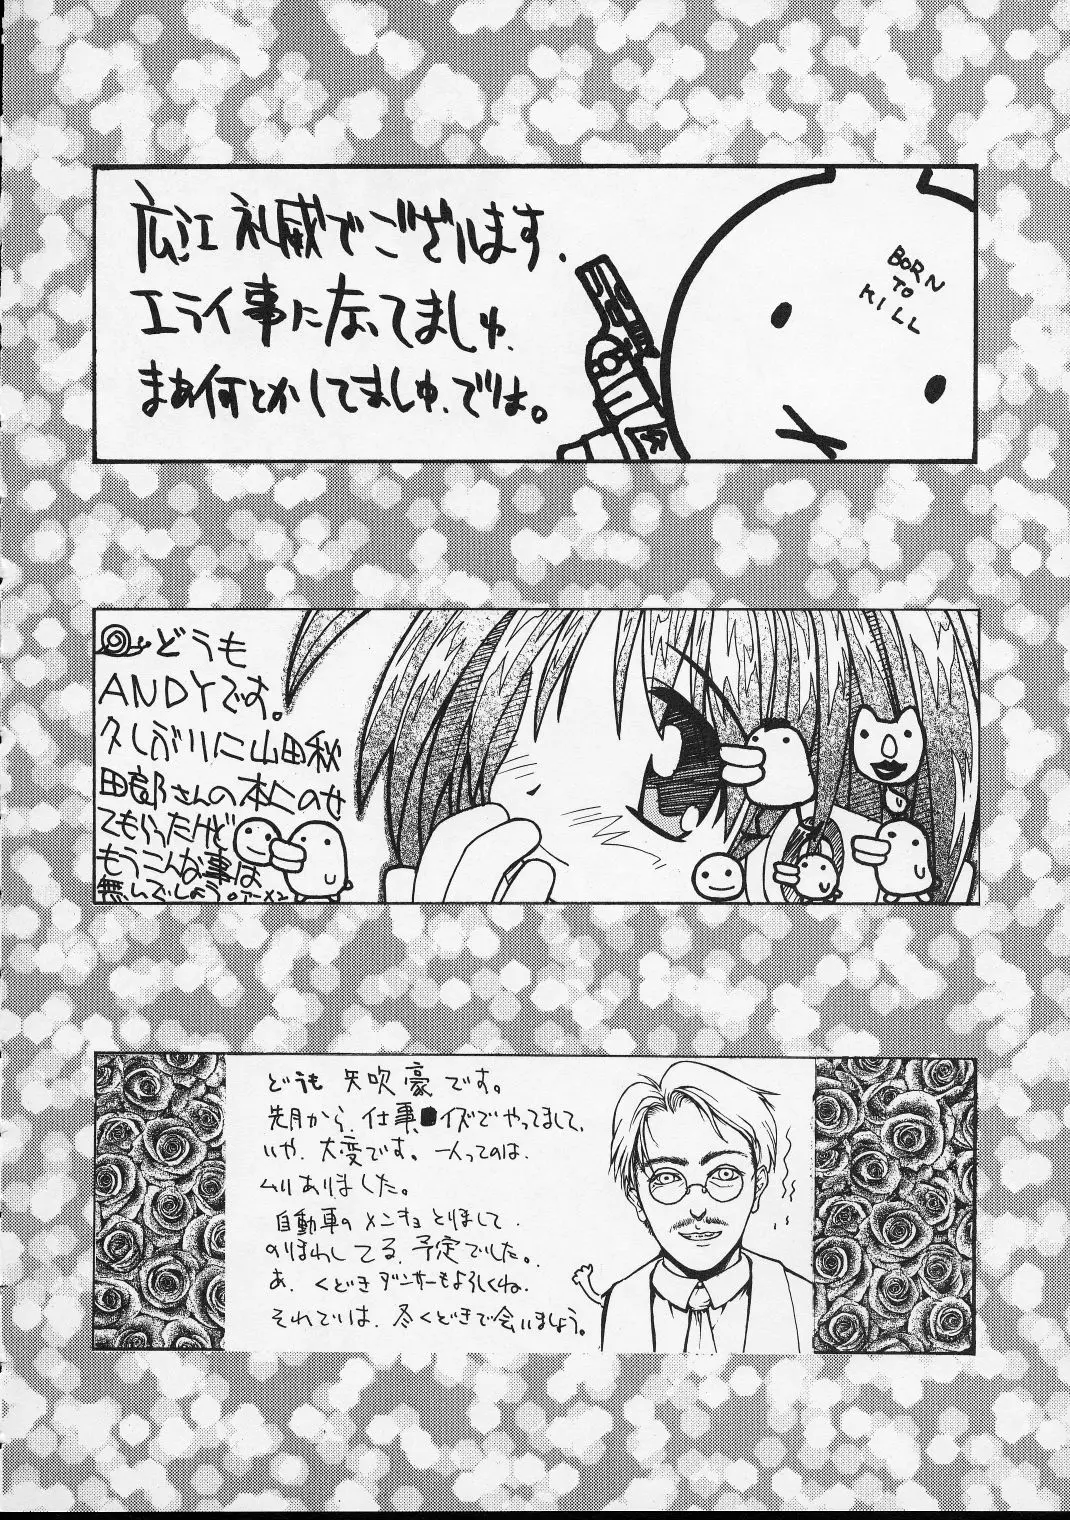 広江礼威でございます.
エライ事になってましゅ.
まぁ何とかしてましゅ.でわ。
BORN
TO
KILL
どうも
ANDYです。
久しぶりに山田秋
田郎さんの本にのせ
てもらったけど
もうこんな事は
無いでしょう。
どうも 矢吹豪です。
先月から、仕事、イズでやってまして、
いや、大変です。一人ってのは、
ムリありました。
自動車のメンキョとりまして、
のりまわしてる、予定でした。
あ、くどきダンサーもよろしくね、
それでは、冬くどきで会いましょう。